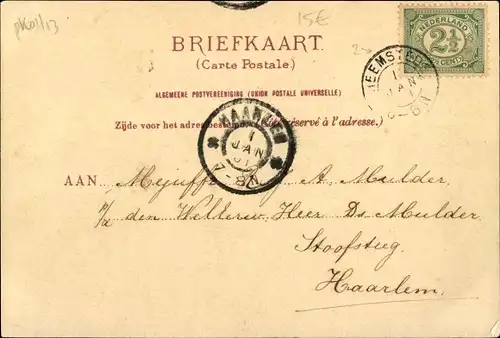 pk01/13
15€
BRIEFKAART.
(Carte Postale.)
ALGEMEENE POSTVEREENIGING (UNION POSTALE UNIVERSELLE)
Zijde voor het adres bestemd. réservé à l'adresse.)
NEDERLAND
2½
CENT
HEEMSTEDE
1
JAN
HAARLEM
1
JAN
01
7-8N
AAN Mejuffr A. Mulder
p/a den Weleerw. Heer Ds Mulder
Stoofsteeg
Haarlem.